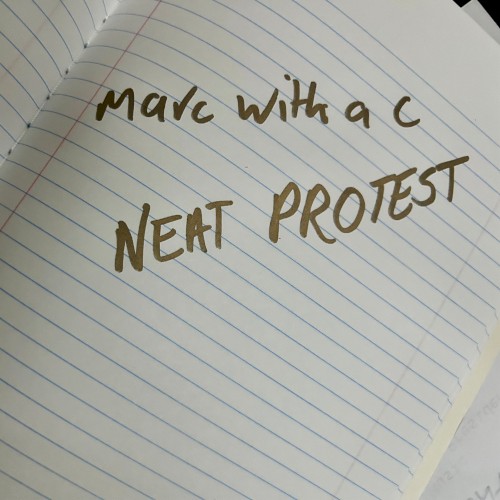 marc with a c
NEAT PROTEST